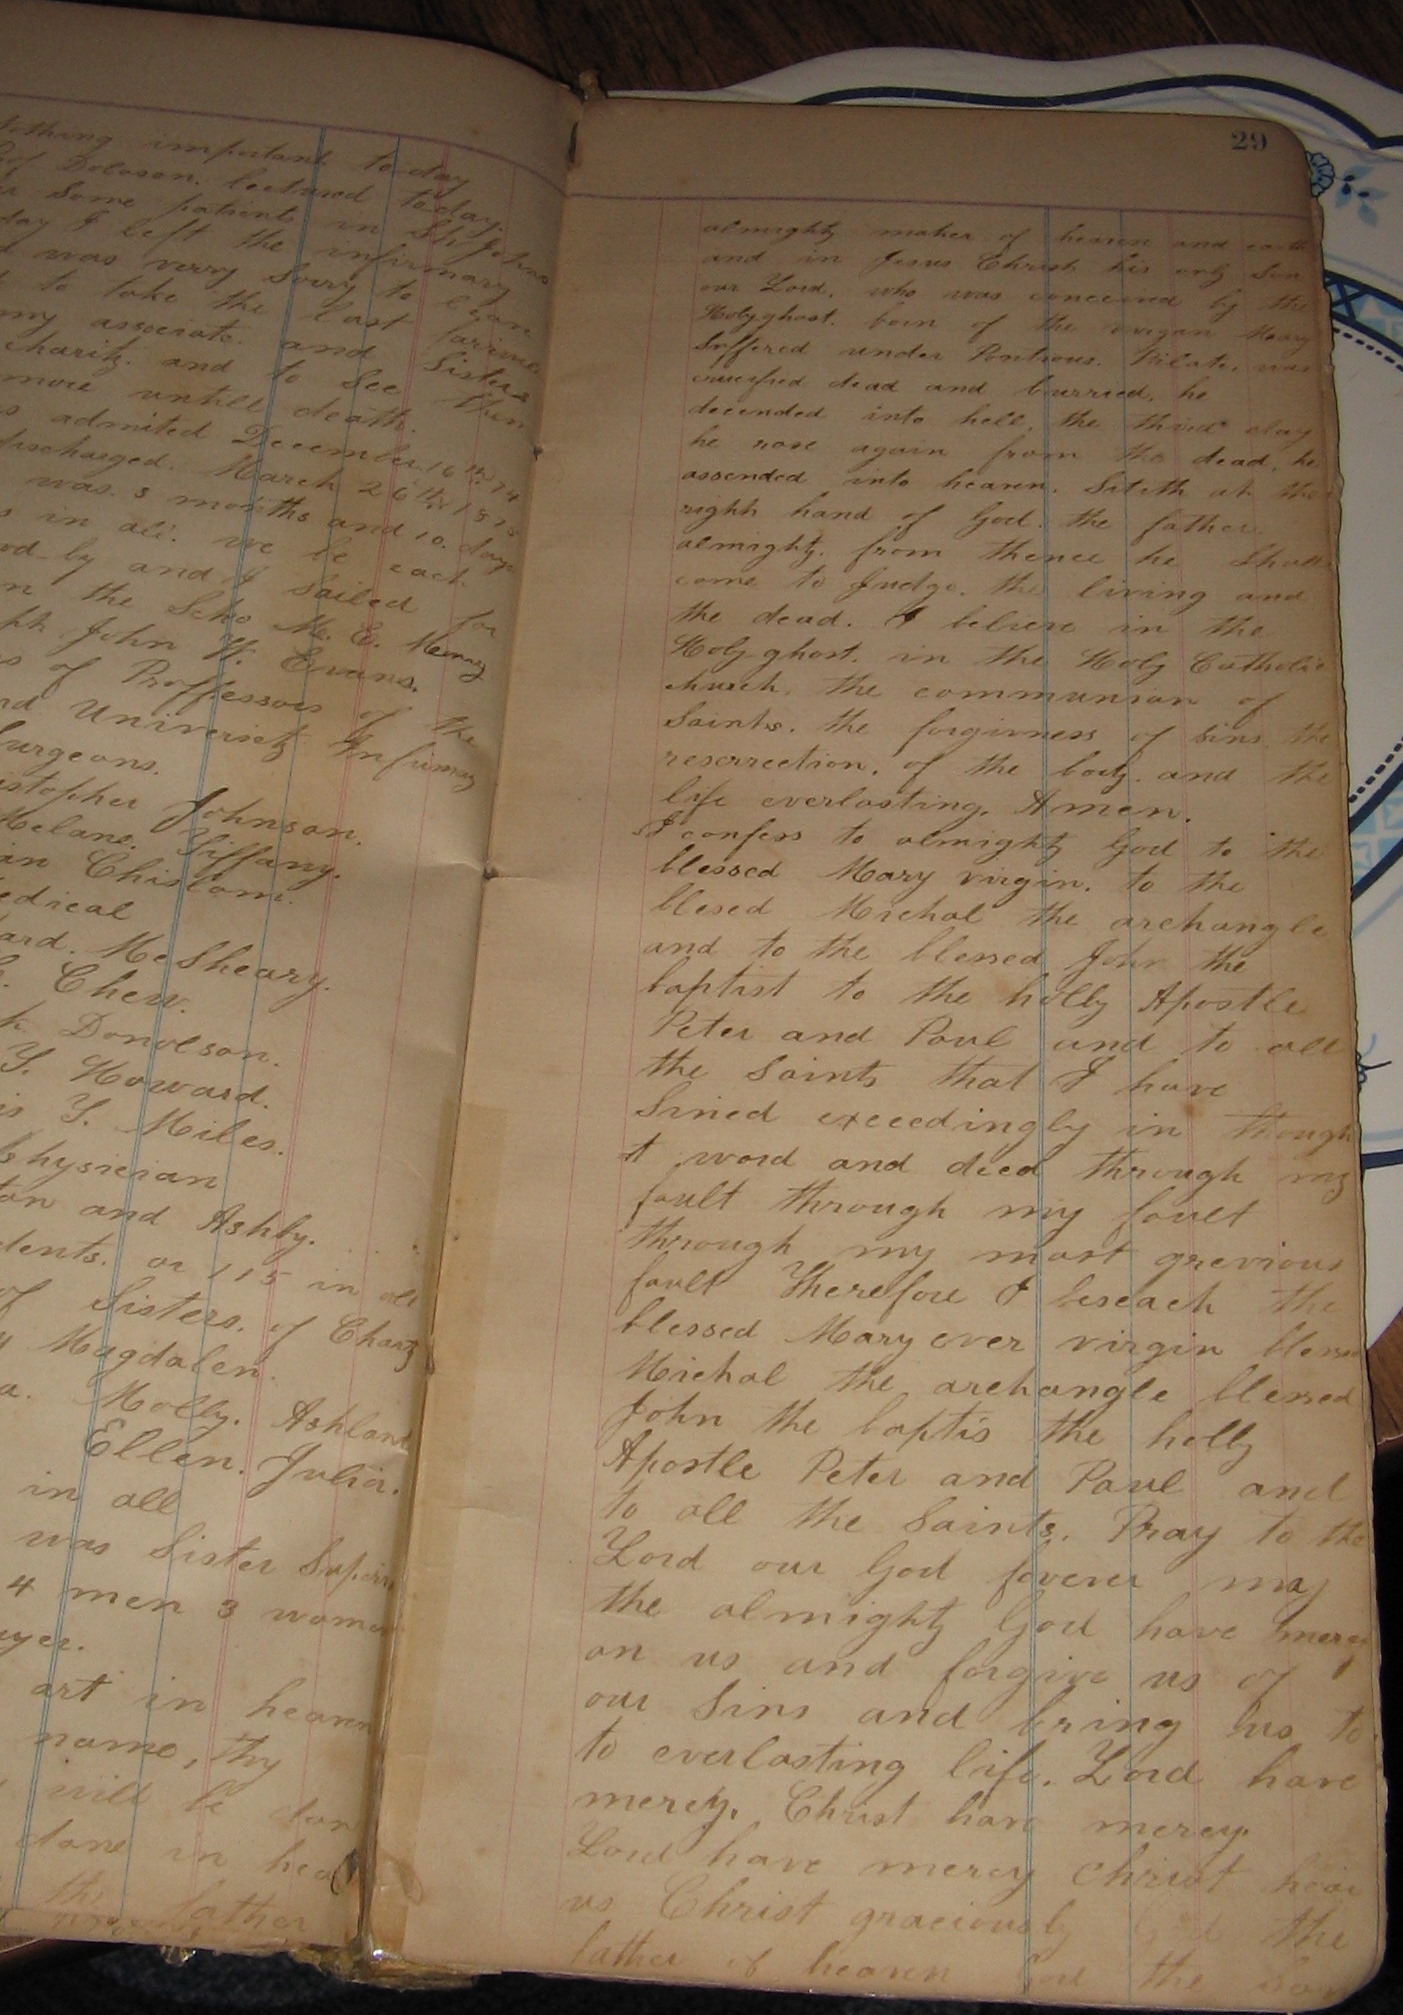 Nothing important today
Prof Doloson. lectured today.
some patients in St Johns
day I left the infirmary
I was verry sorry to leave
to take the last
my associate. and Sisters
charity. and to See them
more untill death.
admited December 16th 74
discharged. March 26th 1875
was. 3 months and 10. days
in all. we be each
by and I Sailed for
on the Scho M. E.
John W. Evans.
of Proffessors of the
and University Infirmary
Surgeons.
Johnson.
Tiffany.
Chislom.
edical
McSheary.
Chew.
Donolson.
Y. Howard.
Y. Miles.
Physician
and Ashby.
dents. or 115 in all
of Sisters. of Charty
Magdalen.
Molly. Ashland
Ellen. Julia.
in all
was Sister
4 men 3 women
art in heaven
name, thy
will be don
done in hea
father
29
almighty maker of heaven and earth
and in Jesus Christ his only Son
our Lord. who was conceived by the
Holy ghost. born of the virgan Mary
Suffered under Pontious. Pilate. was
crucified dead and burried. he
decended into hell. the third day
he rose again from the dead. he
assended into heaven. Siteth at the
right hand of God. the father.
almighty. from thence he Shall
come to Judge. the living and
the dead. I believe in the
Holy ghost. in the Holy Catholic
church. the communion of
Saints. the forgivness of sins. the
reserrection. of the body. and the
life everlasting. Amen.
I confess to almighty God to the
blessed Mary virgin. to the
blesed Michal the archangle
and to the blessed John the
baptist to the holly Apostle
Peter and Paul and to all
the Saints that I have
Sined exceedingly in though
t word and deed through my
fault through my fault
through my most grevious
fault Therefore I beseach the
blessed Mary ever virgin blessed
Michal the archangle blessed
John the baptis the holly
Apostle Peter and Paul and
to all the Saints. Pray to the
Lord our God foverer may
the almighty God have mercy
on us and forgive us of
our Sins and bring us to
to everlasting life. Lord have
mercy. Christ have mercy.
Lord have mercy Christ hear
us Christ graciously the
father of heaven God the Son